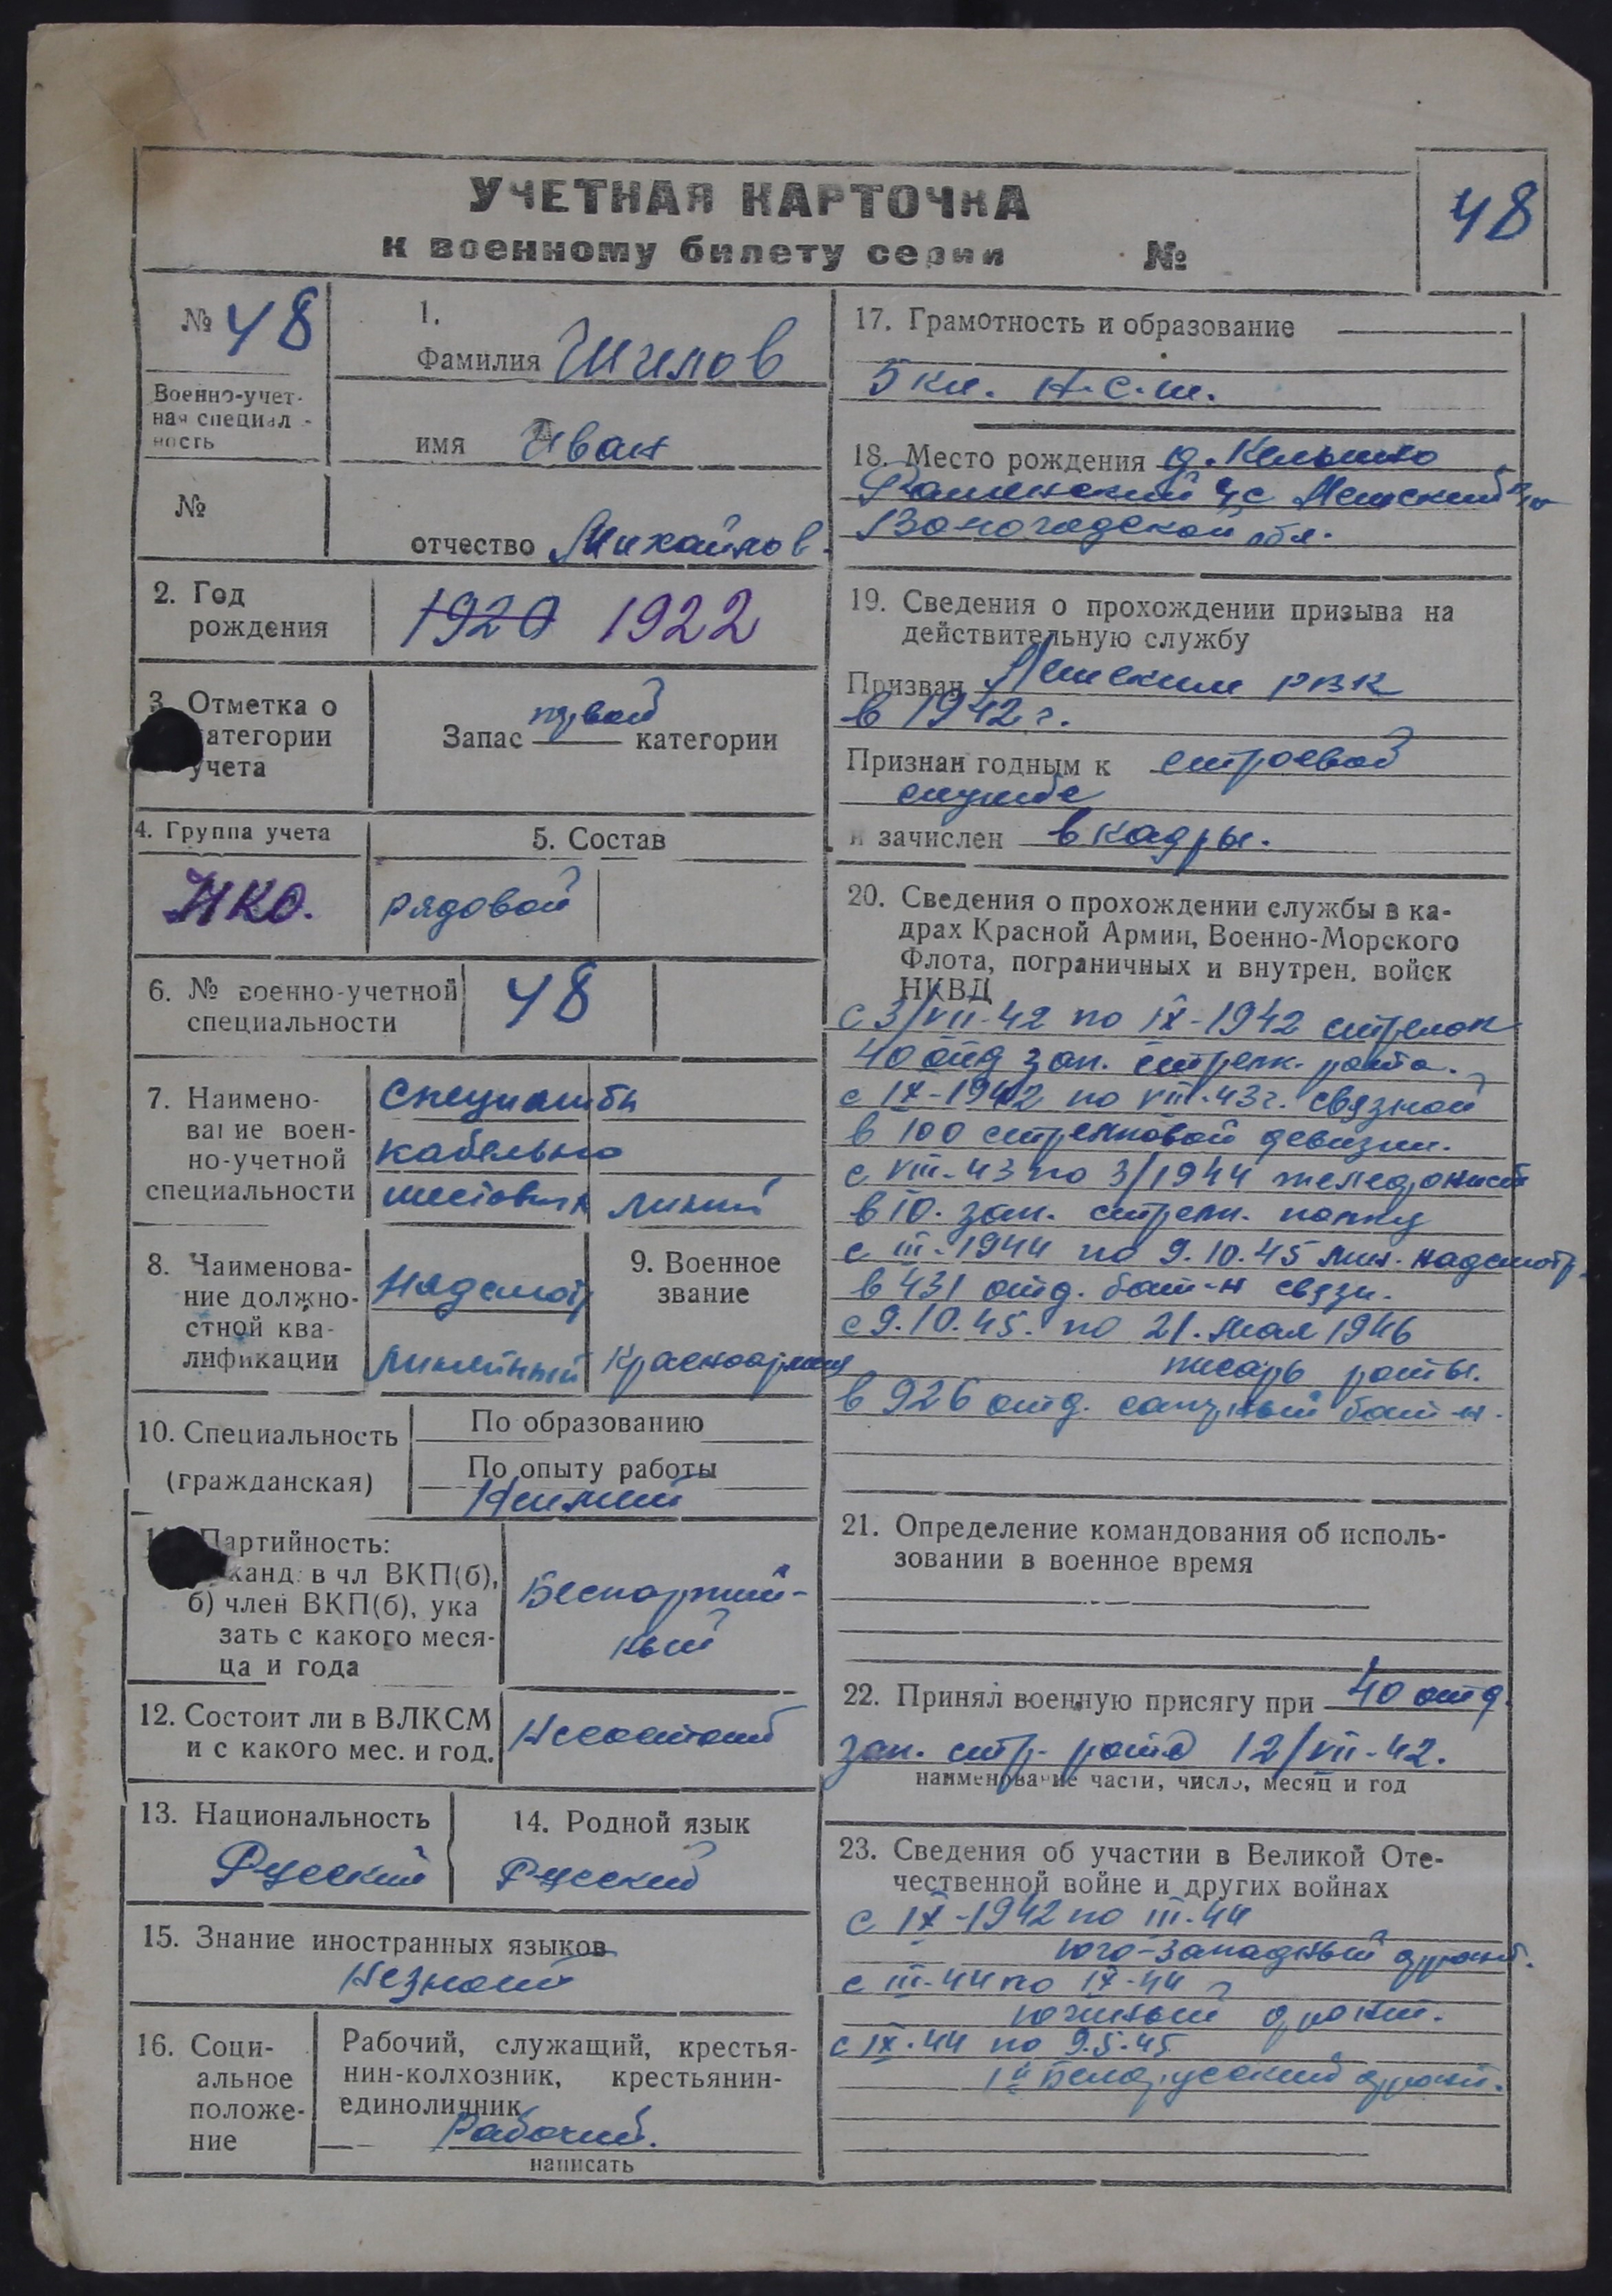 УЧЕТНАЯ КАРТОЧКА
к военному билету серии №
48
№ 48
Военно-учет-
ная специаль-
ность
№
1.
Фамилия Шилов
имя Иван
отчество Михайлов.
2. Год
рождения
1920 1922
3. Отметка о
категории
учета
Запас первой категории
4. Группа учета
НКО.
5. Состав
рядовой
6. № военно-учетной
специальности
48
7. Наимено-
вание воен-
но-учетной
специальности
Специалисты
кабельно
шестовых линий
8. Наименова-
ние должно-
стной ква-
лификации
Надсмотр
линейный
9. Военное
звание
Красноармеец
10. Специальность
(гражданская)
По образованию
По опыту работы
Неимеет
11. Партийность:
канд. в чл ВКП(б),
б) член ВКП(б), ука
зать с какого меся-
ца и года
Беспартий-
ный
12. Состоит ли в ВЛКСМ
и с какого мес. и год.
Несостоит
13. Национальность
Русский
14. Родной язык
Русский
15. Знание иностранных языков
Незнает
16. Соци-
альное
положе-
ние
Рабочий, служащий, крестья-
нин-колхозник, крестьянин-
единоличник
Рабочий.
написать
17. Грамотность и образование
5 кл. н.с.ш.
18. Место рождения д.
с/с
Вологодской обл.
19. Сведения о прохождении призыва на
действительную службу
Призван РВК
в 1942 г.
Признан годным к строевой
службе
и зачислен в кадры.
20. Сведения о прохождении службы в ка-
драх Красной Армии, Военно-Морского
Флота, пограничных и внутрен. войск
НКВД
с 3/VII-42 по IX-1942 стрелок
40 отд зап. стрелк. рота.
с IX-1942 по VIII-43г. связной
в 100 стрелковой девизии.
с VIII-43 по 3/1944 телефонист
в 10. зап. стрелк. полку
с III-1944 по 9.10.45 лин. надсмотр.
в 431 отд. бат-н связи.
с 9.10.45. по 21. мая 1946
писарь роты.
в 926 отд. саперный бат-н.
21. Определение командования об исполь-
зовании в военное время
22. Принял военную присягу при 40 отд.
зап. стр. рота 12/VII-42.
наименование части, число, месяц и год
23. Сведения об участии в Великой Оте-
чественной войне и других войнах
с IX-1942 по III-44
юго-западный фронт.
с III-44 по IX-44
фронт.
с IX-44 по 9.5.45
1й Белорусский фронт.